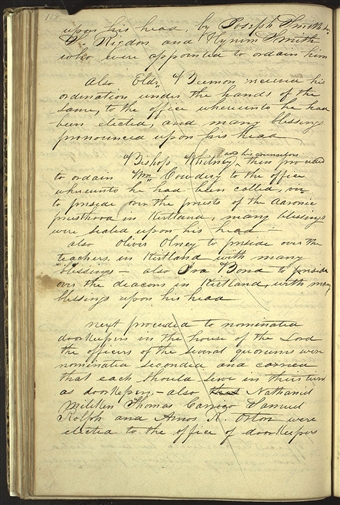 upon his head, by Joseph Smith Jr,
S. Rigdon and Hyrum Smith
who were appointed to ordain him
Also Eldr, Z Beemon received his
ordination under the hands of the
same, to the office whereunto he had
been elected, and many blessings
pronounced upon his head
Bishop Whitney, and his counselors then proceeded
to ordain Wm Cowdery to the office
whereunto he had been called,
to preside over the priests of the Aaronic
priesthood in Kirtland, many blessings
were sealed upon his head —
also Oliver Olney to preside over the
teachers in Kirtland with many
blessings — also Ira Bond to preside
over the deacons in Kirtland, with many
blessings upon his head
next proceeded to nominate
doorkeepers in the house of the Lord
the officers of the several quorums were
nominated seconded and carried
that each should serve in their turn
as doorkeepers — also Nathaniel
Miliken Thomas Carrico Samuel
Rolph and Amos R. Orton were
elected to the office of doorkeepers